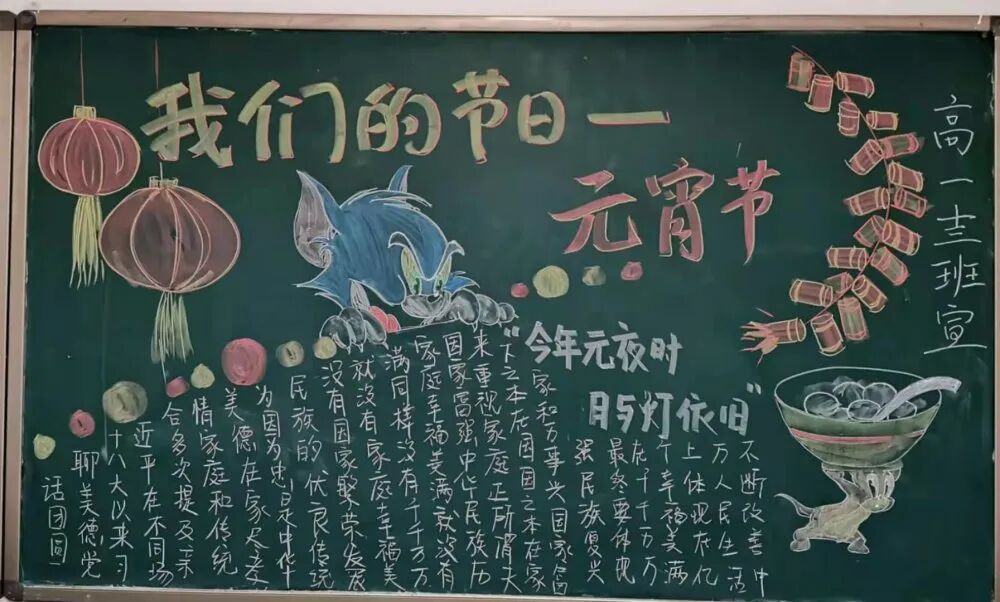 我们的节日一
元宵节
高一十三班宣
"今年元夜时
月与灯依旧"
话团圆
聊美德党
十八大以来习
近平在不同场
合多次提及亲
情家庭和传统
美德在家尽孝
为国为忠是中华
民族的优良传统
没有国家繁荣发展
就没有家庭幸福美
满同样没有千千万万
家庭幸福美满就没有
国家富强中华民族历
来重视家庭正所谓天
下之本在国国之本在家
家和万事兴国家富
强民族复兴
最终要体现
在千千万万
个幸福美满
上体现在亿
万人民生活
不断改善中